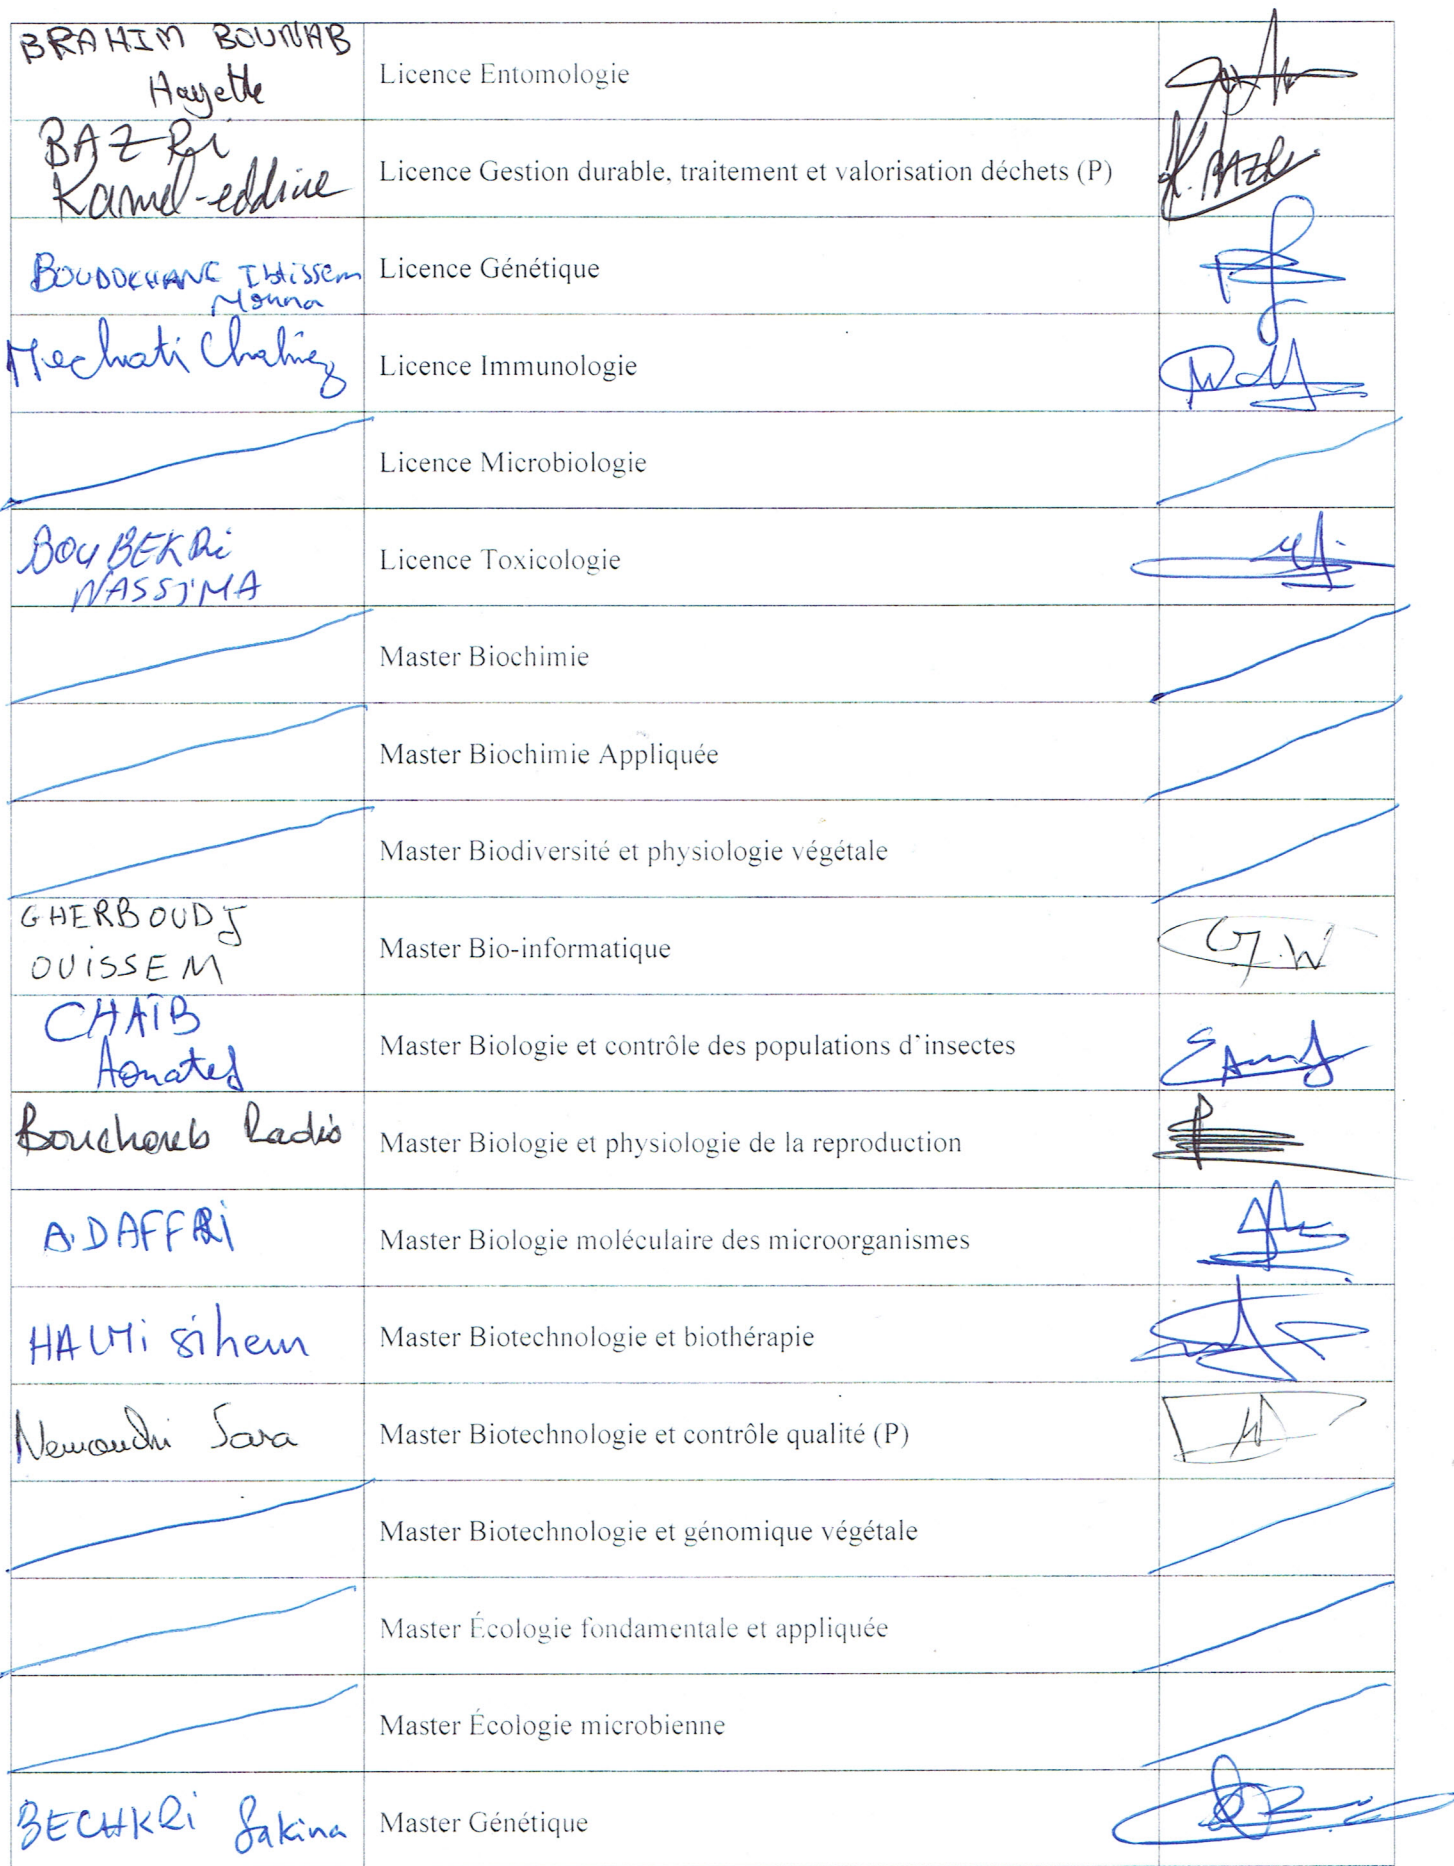 BRAHIM BOUNAB
Hayette
Licence Entomologie
BAZRi
Kamel-eddine
Licence Gestion durable, traitement et valorisation déchets (P)
K. BAZRi
BOUDOKHANE Ibtissem
Mouna
Licence Génétique
Mechati Chahinez
Licence Immunologie
Licence Microbiologie
BOUBEKRi
NASSIMA
Licence Toxicologie
Master Biochimie
Master Biochimie Appliquée
Master Biodiversité et physiologie végétale
GHERBOUDJ
OUiSSEM
Master Bio-informatique
G.W
CHAIB
Aouatef
Master Biologie et contrôle des populations d'insectes
Bouchareb Radia
Master Biologie et physiologie de la reproduction
A.DAFFRi
Master Biologie moléculaire des microorganismes
HALMi Sihem
Master Biotechnologie et biothérapie
Nemouchi Sara
Master Biotechnologie et contrôle qualité (P)
Master Biotechnologie et génomique végétale
Master Écologie fondamentale et appliquée
Master Écologie microbienne
BECHKRi Sakina
Master Génétique